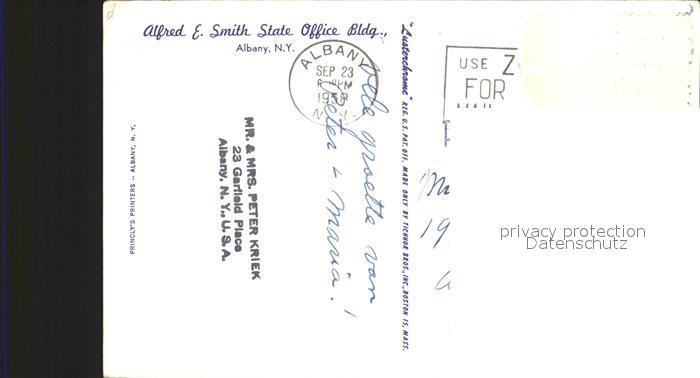 Alfred E. Smith State Office Bldg.,
Albany, N.Y.
ALBANY
SEP 23
PM
N.Y.
USE Z
FOR
MAIL
vele groette van
Peter & Maria!
MR. & MRS. PETER KRIEK
23 Garfield Place
Albany, N. Y., U. S. A.
PRINCLY'S PRINTERS -- ALBANY, N. Y.
"Lusterchrome" REG. U.S. PAT. OFF. MADE ONLY BY TICHNOR BROS., INC., BOSTON 15, MASS.
19
privacy protection
Datenschutz